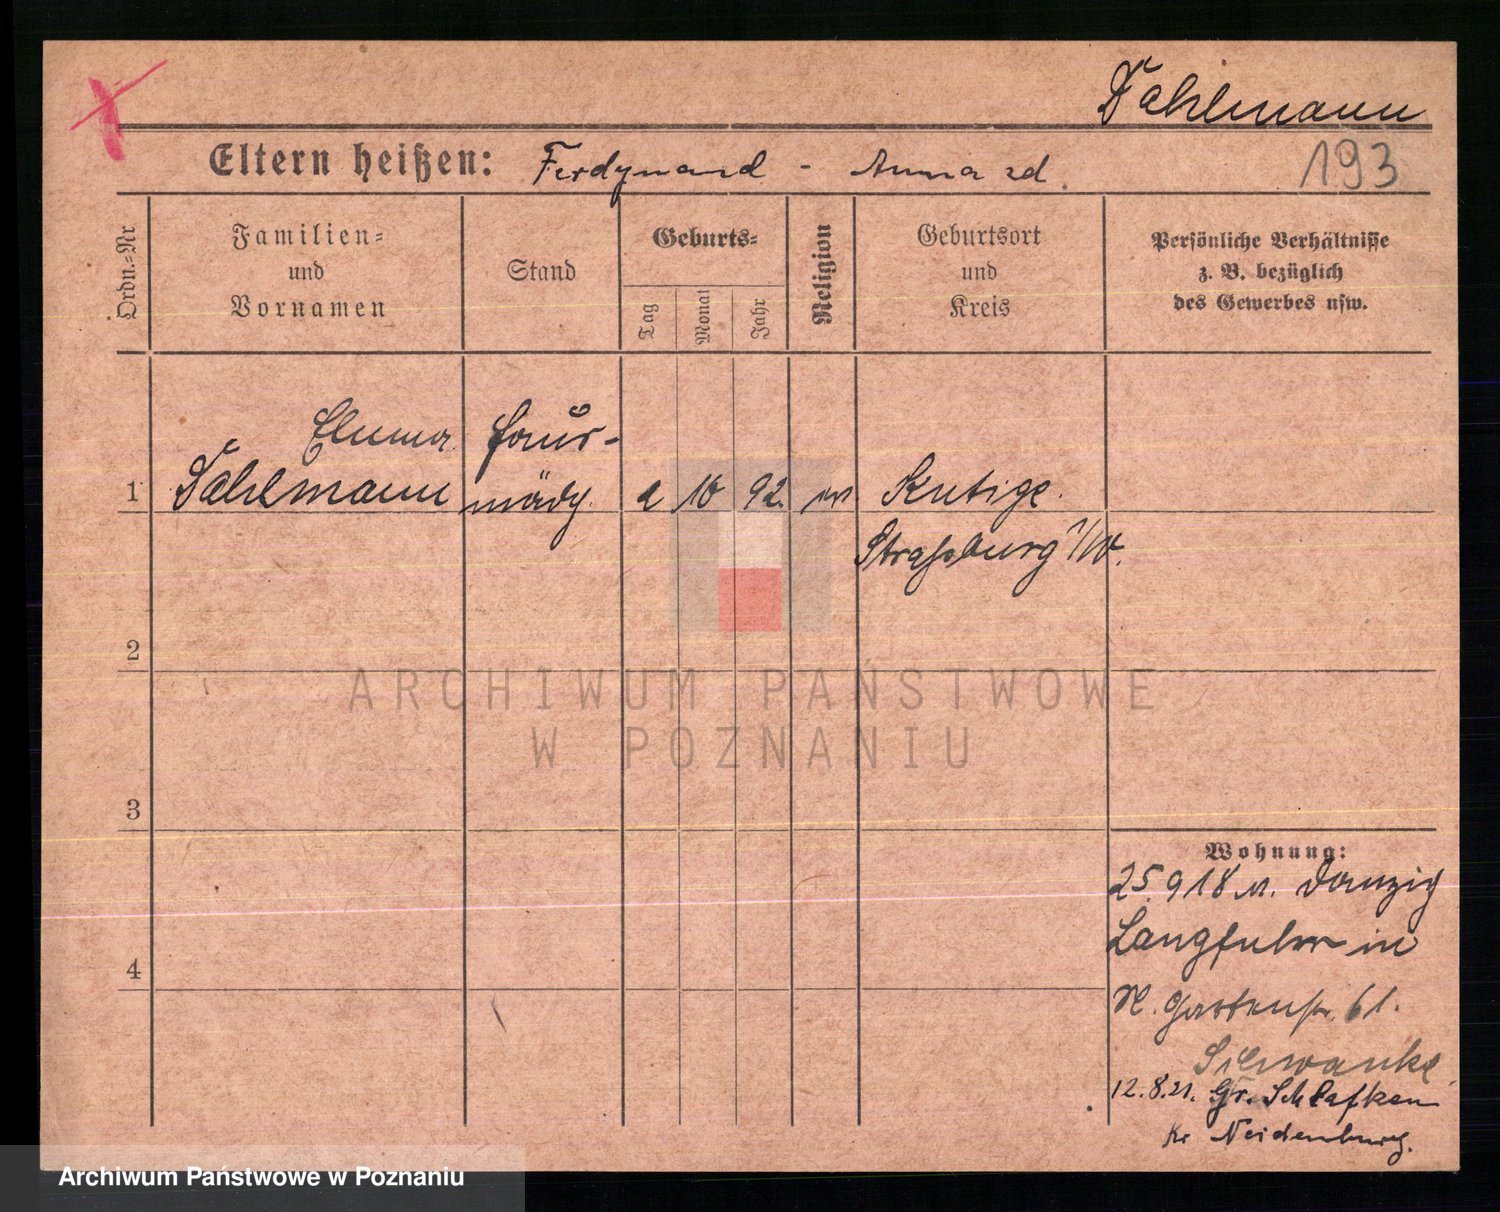 Dahlmann
Eltern heißen: Ferdynand - Anna zd.
193
Ordn.-Nr
Familien-
und
Vornamen
Stand
Geburts-
Tag
Monat
Jahr
Religion
Geburtsort
und
Kreis
Persönliche Verhältnisse
z. B. bezüglich
des Gewerbes usw.
Haus-
1 Dahlmann mädch. 2 10 92. ev.
Straßburg /W.
2
3
4
Wohnung:
25.9 18 n. Danzig
Langfuhr in
N. Gartenstr. 61.
Schwanke
12.8.21. Gr. Schlefken
Kr Neidenburg.
ARCHIWUM PAŃSTWOWE
W POZNANIU
Archiwum Państwowe w Poznaniu